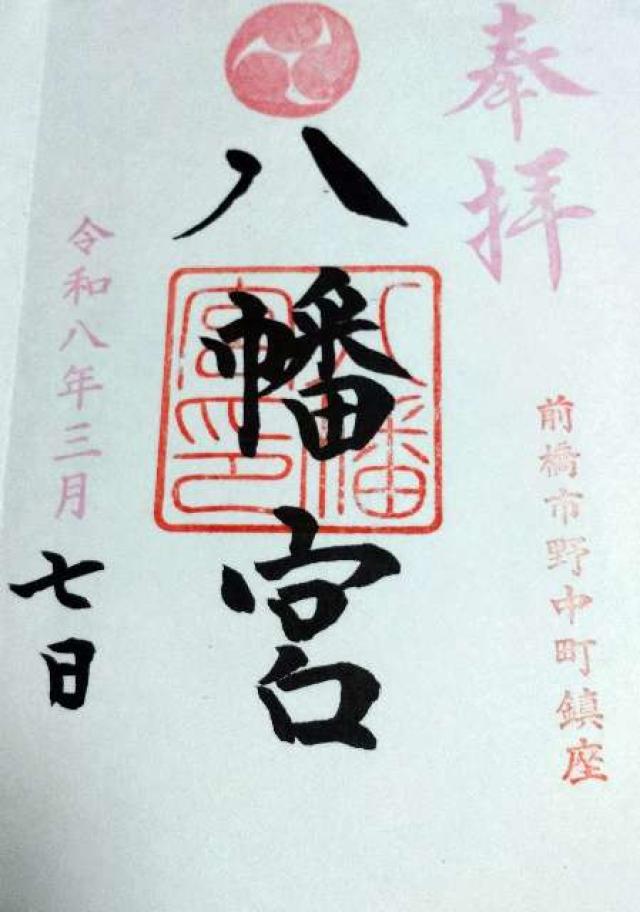 奉拝
前橋市野中町鎮座
八幡宮
八幡宮印
令和八年三月
七日